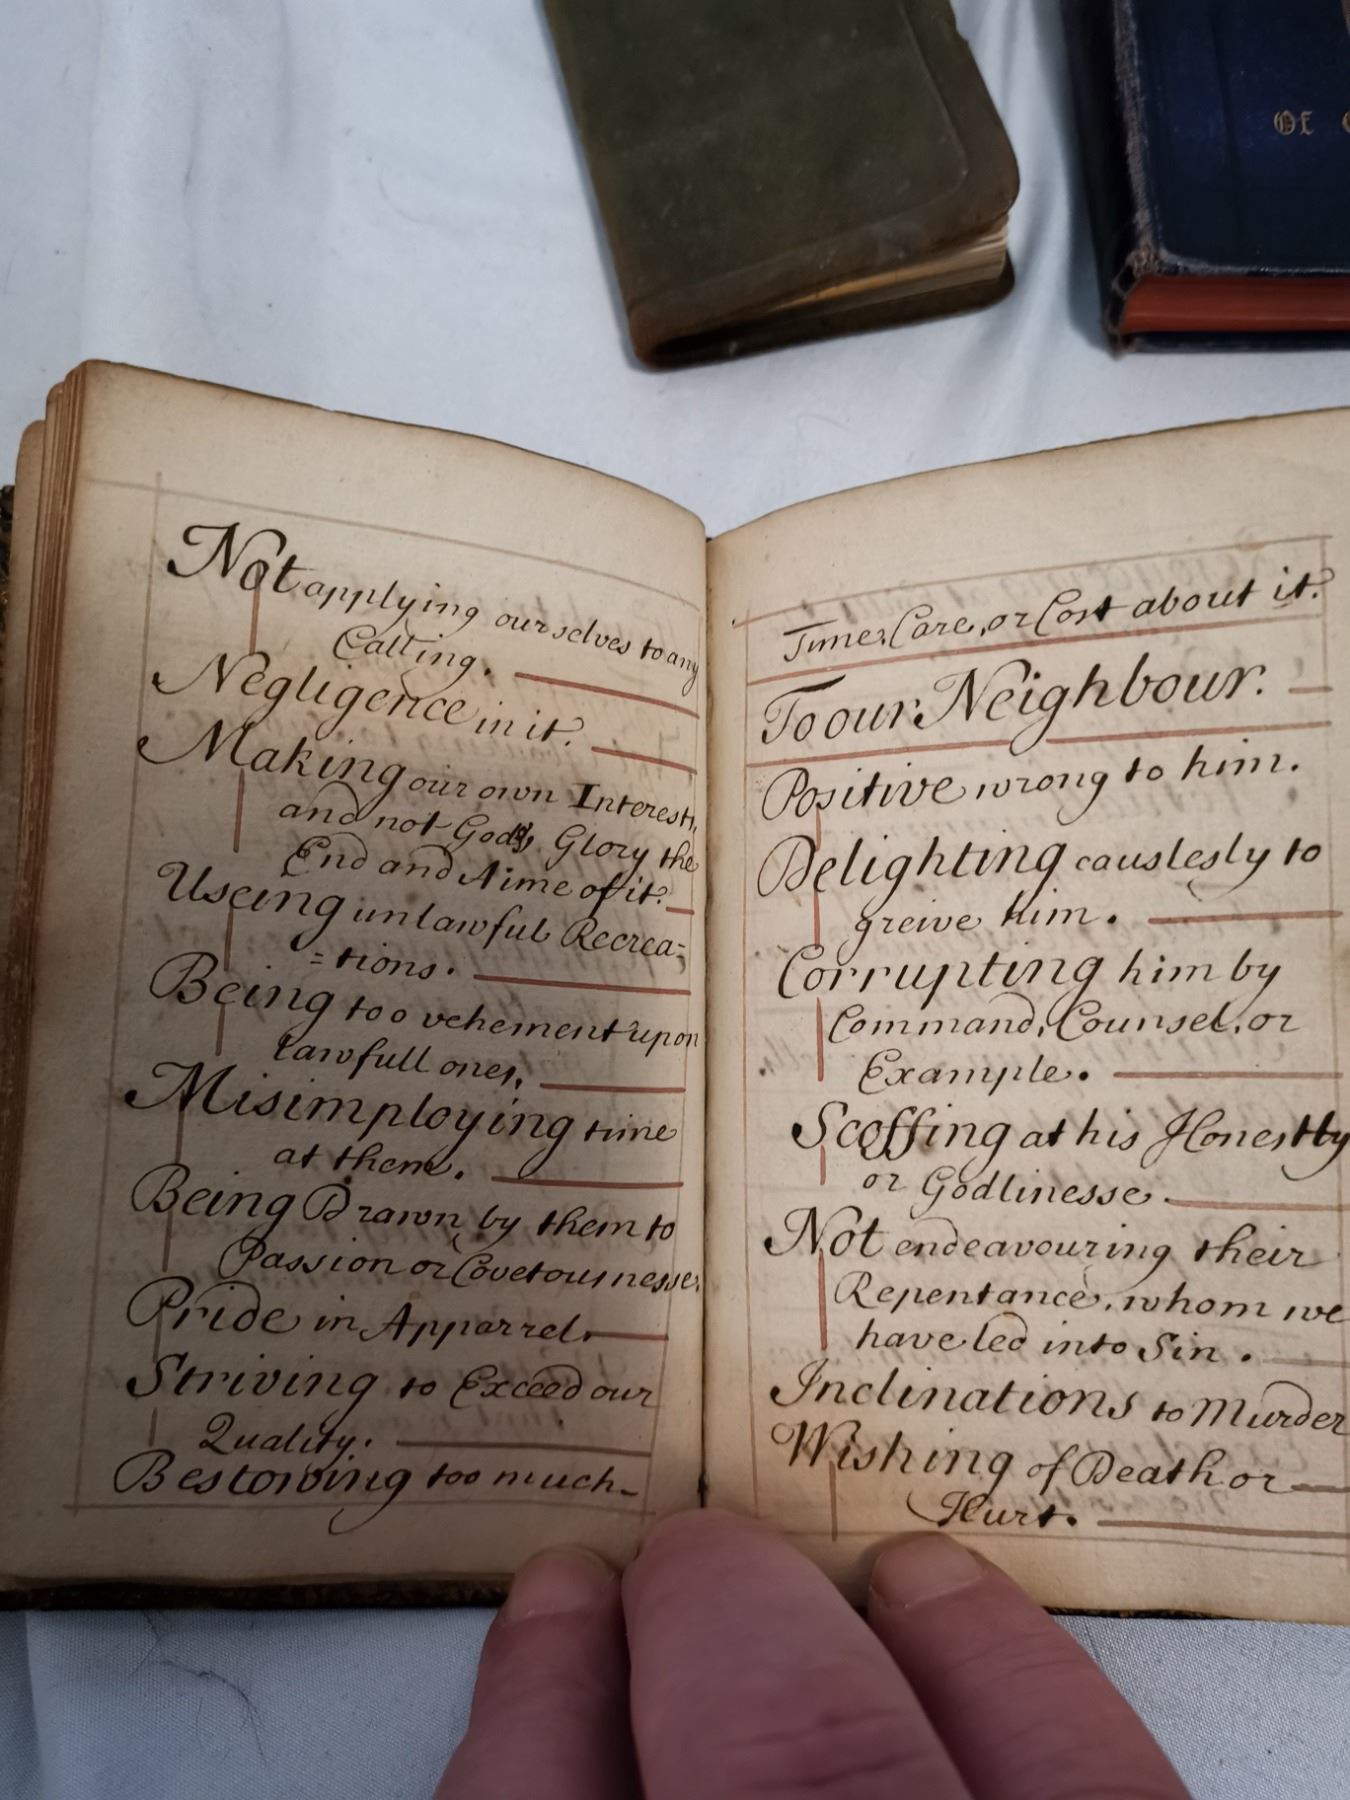 OF
Not applying ourselves to any
Calling.
Negligence in it.
Making our own Interest,
and not God's Glory the
End and Aime of it.
Useing unlawful Recrea-
=tions.
Being too vehement upon
lawfull ones,
Misimploying time
at them.
Being Drawn by them to
Passion or Covetousnesse.
Pride in Apparrel.
Striving to Exceed our
Quality.
Bestowing too much
Time, Care, or Cost about it.
To our Neighbour.
Positive wrong to him.
Delighting causlesly to
greive him.
Corrupting him by
Command, Counsel, or
Example.
Scoffing at his Honestty
or Godlinesse.
Not endeavouring their
Repentance, whom we
have led into Sin.
Inclinations to Murder
Wishing of Death or
Hurt.